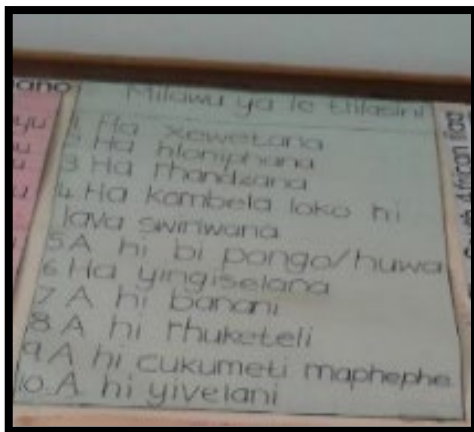 ano
Milawu ya le tlilasini
1 Ha xewetana
2 Ha hloniphana
3 Ha rhandzana
4 Ha kombela loko hi
lava swiriwana
5 A hi bi pongo/huwa
6 Ha yingiselana
7 A hi banani
8 A hi rhuketeli
9 A hi cukumeti maphephe
10. A hi yivelani
African